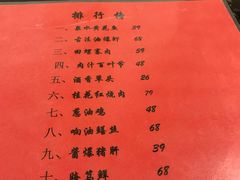 排行榜
一、泉水黄花鱼 59
二、古法油爆虾 68
三、田螺塞肉 39
四、肉汁百叶节 48
五、酒香草头 26
六、桂花红烧肉 79
七、葱油鸡 48
八、响油鳝丝 68
九、酱爆猪肝 39
十、腌笃鲜 68